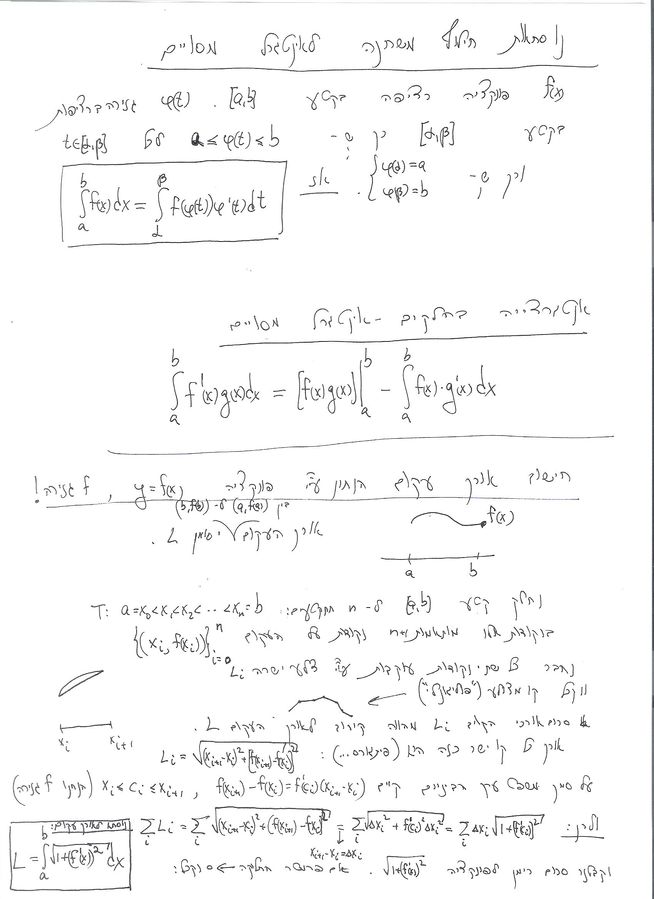 נוסחאת חילוף משתנה לאינטגרל מסויים
f(x) פונקציה רציפה בקטע [a,b]. φ(t) גזירה ברציפות
בקטע [α,β] כך ש- a ≤ φ(t) ≤ b לכל t∈[α,β]
וכן ש- { φ(α)=a φ(β)=b . אז
∫_a^b f(x)dx = ∫_α^β f(φ(t))φ'(t)dt
אינטגרצייה בחלקים - אינטגרל מסויים
∫_a^b f'(x)g(x)dx = [f(x)g(x)]|_a^b - ∫_a^b f(x)·g'(x)dx
חישוב אורך עקום הנתון ע"י פונקציה y=f(x), f גזירה!
בין (a,f(a)) ל- (b,f(b))
אורך העקום יסומן L.
f(x)
a b
נחלק קטע [a,b] ל- n תתקטעים: T: a=x₀<x₁<x₂<...<xₙ=b
נקודות על העקום {(xᵢ, f(xᵢ))}_{i=0}^n
נחבר כל שתי נקודות עוקבות ע"י צלע ישרה Lᵢ
ונקבל קו מצולע ("פוליגונלי")
xᵢ xᵢ₊₁
סכום אורכי הקוים Lᵢ מהווה קירוב לאורך העקום L.
אורך כל קו ישר כזה הוא (פיתגורס...): Lᵢ = √((xᵢ₊₁-xᵢ)²+[f(xᵢ₊₁)-f(xᵢ)]²)
על סמך משפט ערך הביניים קיים f(xᵢ₊₁)-f(xᵢ)=f'(cᵢ)(xᵢ₊₁-xᵢ) , xᵢ ≤ cᵢ ≤ xᵢ₊₁ (נתון f גזירה)
ולכן: ∑ᵢ Lᵢ = ∑ᵢ √((xᵢ₊₁-xᵢ)²+(f(xᵢ₊₁)-f(xᵢ))²) = ∑ᵢ √(Δxᵢ²+f'(cᵢ)²Δxᵢ²) = ∑ᵢ Δxᵢ √(1+f'(cᵢ)²)
xᵢ₊₁-xᵢ=Δxᵢ
וקבלנו סכום רימן לפונקציה √(1+f'(x)²). אם פרמטר חלוקה → 0 נקבל:
נוסחא לאורך עקום:
L = ∫_a^b √(1+(f'(x))²) dx